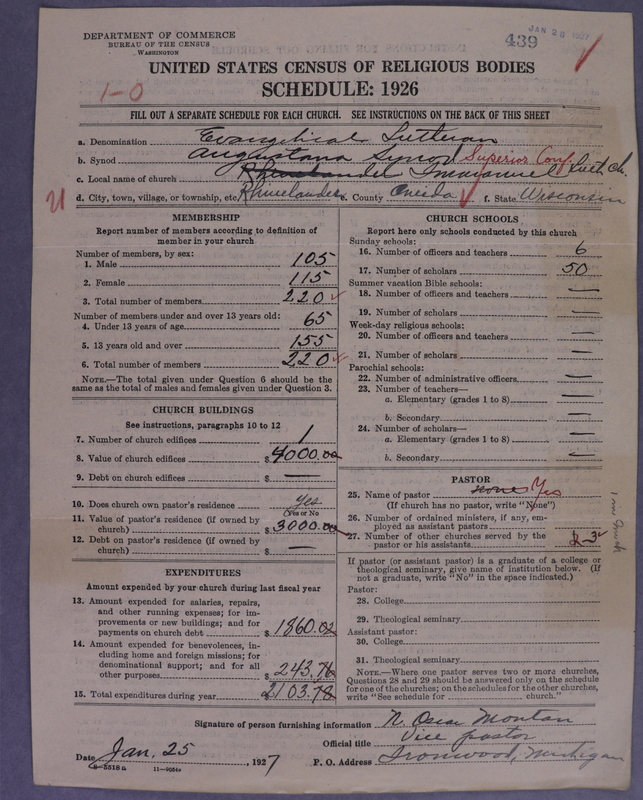 DEPARTMENT OF COMMERCE
BUREAU OF THE CENSUS
WASHINGTON
JAN 28 1927
439
1-0
UNITED STATES CENSUS OF RELIGIOUS BODIES
SCHEDULE: 1926
FILL OUT A SEPARATE SCHEDULE FOR EACH CHURCH. SEE INSTRUCTIONS ON THE BACK OF THIS SHEET
a. Denomination Evangelical Lutheran
b. Synod Augustana Synod Superior Conf.
c. Local name of church Immanuel Luth Ch.
d. City, town, village, or township, etc. Rhinelander e. County Oneida f. State Wisconsin
U
MEMBERSHIP
Report number of members according to definition of
member in your church
Number of members, by sex:
1. Male 105
2. Female 115
3. Total number of members 220
Number of members under and over 13 years old:
4. Under 13 years of age 65
5. 13 years old and over 155
6. Total number of members 220
NOTE.—The total given under Question 6 should be the
same as the total of males and females given under Question 3.
CHURCH BUILDINGS
See instructions, paragraphs 10 to 12
7. Number of church edifices 1
8. Value of church edifices $4000.00
9. Debt on church edifices $ —
10. Does church own pastor's residence Yes
(Yes or No)
11. Value of pastor's residence (if owned by
church) $3000.00
12. Debt on pastor's residence (if owned by
church) $ —
EXPENDITURES
Amount expended by your church during last fiscal year
13. Amount expended for salaries, repairs,
and other running expenses; for im-
provements or new buildings; and for
payments on church debt $1860.02
14. Amount expended for benevolences, in-
cluding home and foreign missions; for
denominational support; and for all
other purposes $243.76
15. Total expenditures during year $2103.78
CHURCH SCHOOLS
Report here only schools conducted by this church
Sunday schools:
16. Number of officers and teachers 6
17. Number of scholars 50
Summer vacation Bible schools:
18. Number of officers and teachers —
19. Number of scholars —
Week-day religious schools:
20. Number of officers and teachers —
21. Number of scholars —
Parochial schools:
22. Number of administrative officers —
23. Number of teachers—
a. Elementary (grades 1 to 8) —
b. Secondary —
24. Number of scholars—
a. Elementary (grades 1 to 8) —
b. Secondary —
PASTOR
25. Name of pastor none Yes
(If church has no pastor, write "None")
26. Number of ordained ministers, if any, em-
ployed as assistant pastors
27. Number of other churches served by the
pastor or his assistants 3
If pastor (or assistant pastor) is a graduate of a college or
theological seminary, give name of institution below. (If
not a graduate, write "No" in the space indicated.)
Pastor:
28. College
29. Theological seminary
Assistant pastor:
30. College
31. Theological seminary
NOTE.—Where one pastor serves two or more churches,
Questions 28 and 29 should be answered only on the schedule
for one of the churches; on the schedules for the other churches,
write "See schedule for church."
Signature of person furnishing information N. Oscar Montan
Official title Vice pastor
Date Jan. 25, 1927 P. O. Address Ironwood, Michigan
8-5518a 11-9054a